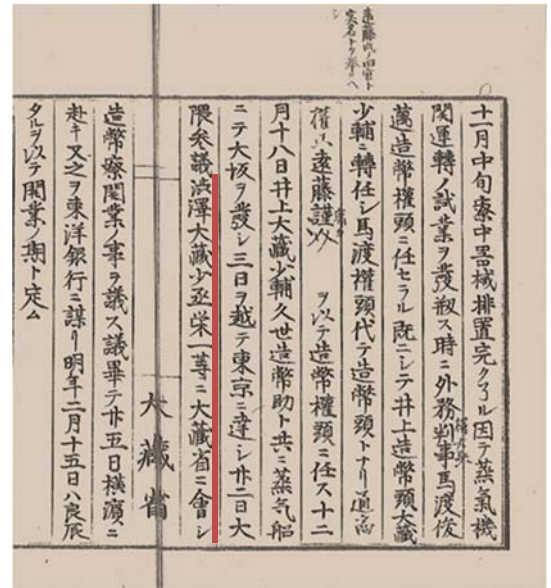 遠藤氏ノ旧官ト
実名トヲ挙クヘ
シ
十一月中旬寮中器械排置完クナル因テ蒸氣機
関運轉ノ試業ヲ發靱ス時ニ外務權大丞判事馬渡俊
邁造幣權頭ニ任セラル既ニシテ井上造幣頭大藏
少輔ニ轉任シ馬渡權頭代テ造幣頭トナリ
遠藤謹 ヲ以テ造幣權頭ニ任ス十二
月十八日井上大藏少輔久世造幣助ト共ニ蒸気船
ニテ大坂ヲ發シ三日ヲ越テ東京ニ達シ廿二日大
隈参議渋澤大藏少丞栄一等ニ大藏省ニ會シ
大藏省
造幣寮開業ノ事ヲ議ス議畢テ廿五日横濱ニ
赴キ又之ヲ東洋銀行ニ謀リ明年二月十五日ハ良辰
タルヲ以テ開業ノ期ト定ム